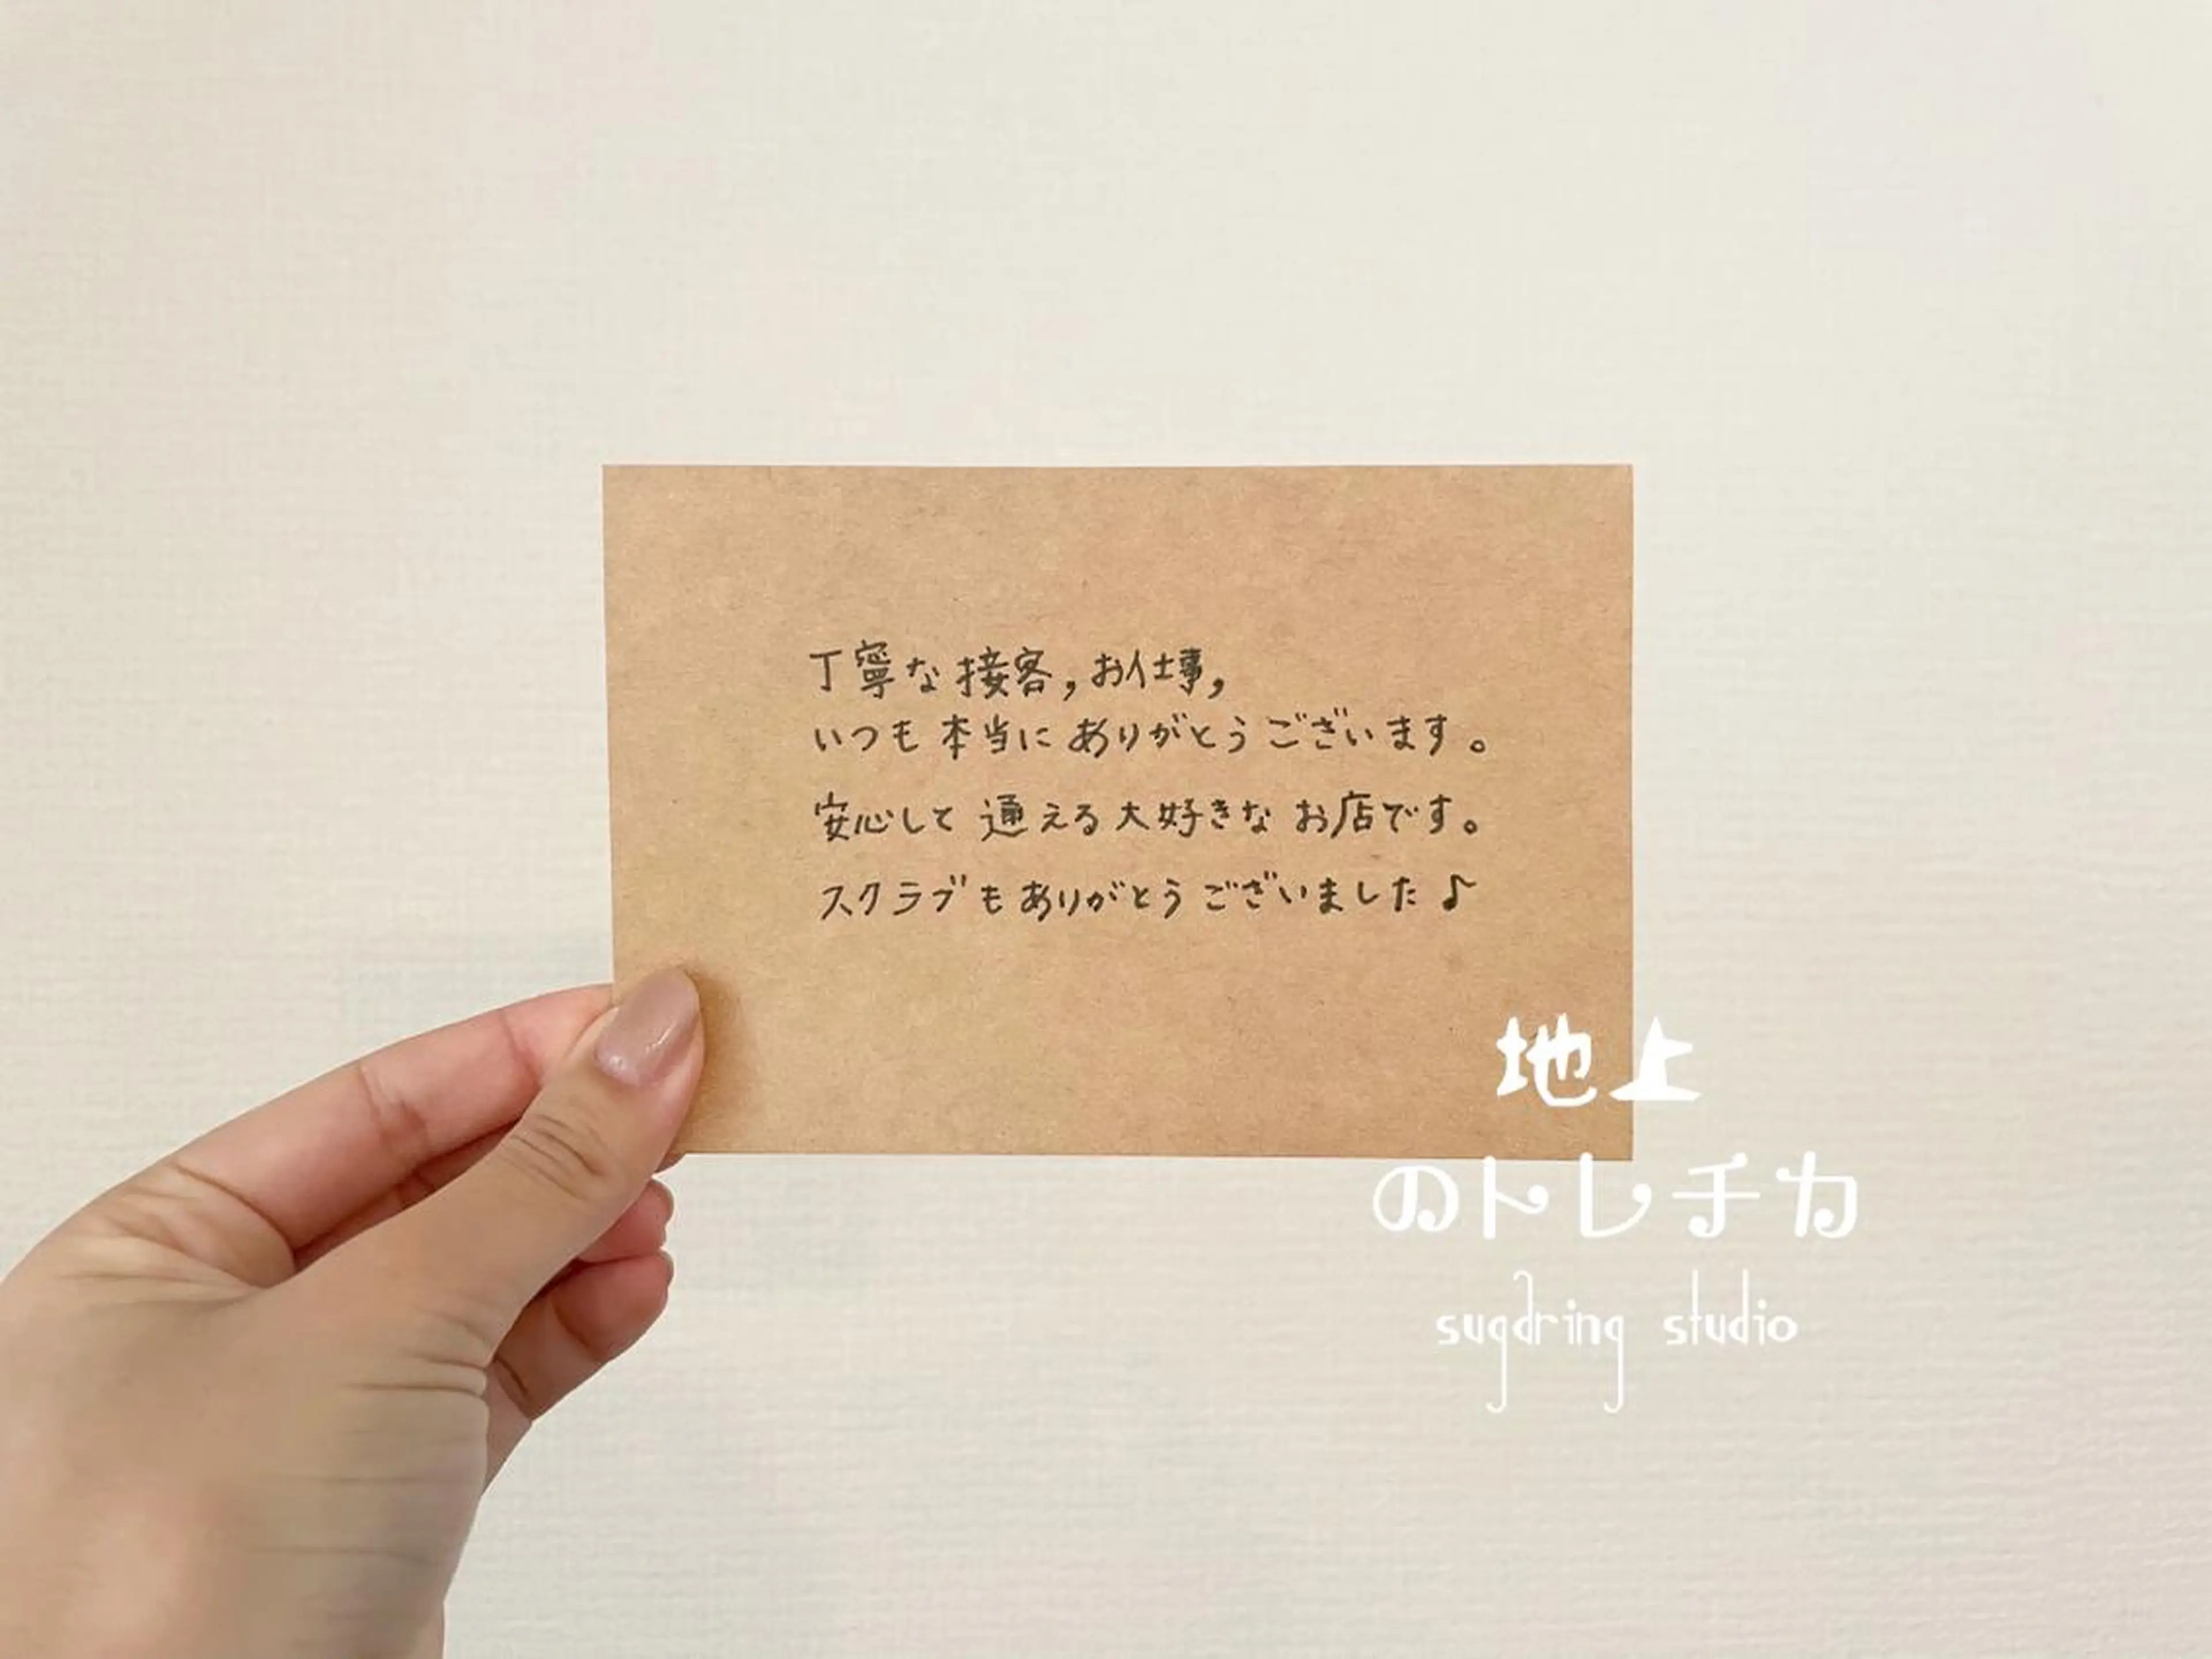 丁寧な接客,お仕事,
いつも本当にありがとうございます。
安心して通える大好きなお店です。
スクラブもありがとうございました♪
地上
のトレチカ
sugdring studio